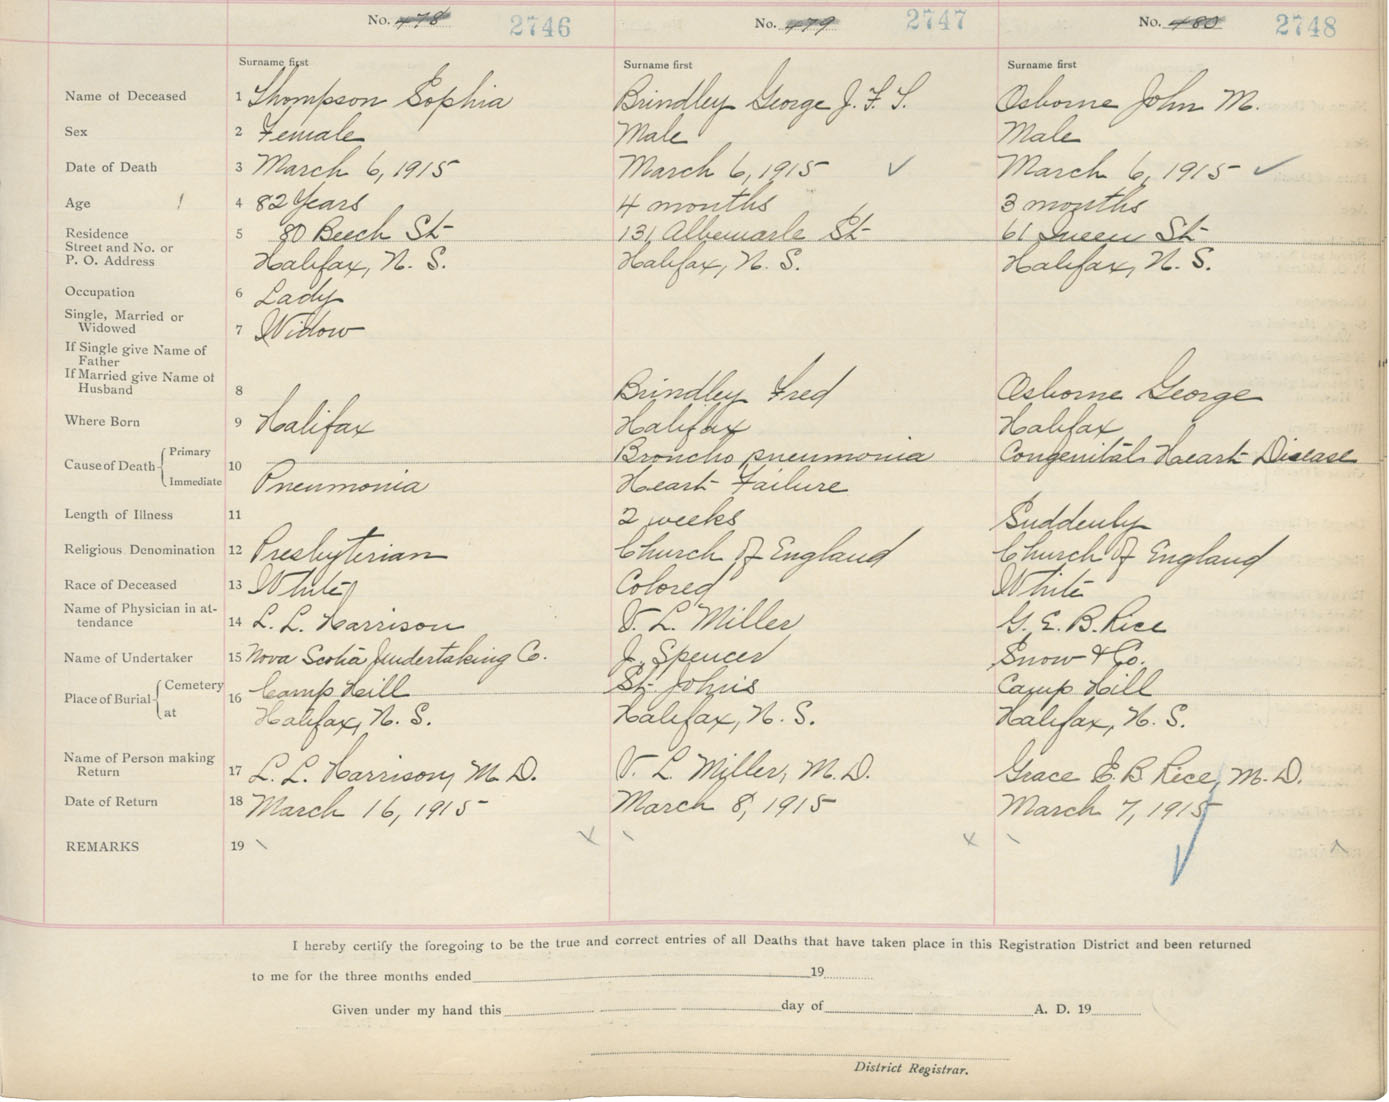 No. 478 2746 No. 479 2747 No. 480 2748
Surname first Surname first Surname first
Name of Deceased 1 Thompson Sophia Brindley George J. F. S. Osborne John M.
Sex 2 Female Male Male
Date of Death 3 March 6, 1915 March 6, 1915 ✓ March 6, 1915 ✓
Age 4 82 Years 4 months 3 months
Residence 5 80 Beech St 131 Albemarle St 61 Queen St
Street and No. or
P. O. Address Halifax, N. S. Halifax, N. S. Halifax, N. S.
Occupation 6 Lady
Single, Married or
Widowed 7 Widow
If Single give Name of
Father
If Married give Name of
Husband 8 Brindley Fred Osborne George
Where Born 9 Halifax Halifax Halifax
Cause of Death Primary 10 Broncho pneumonia Congenital Heart Disease
Immediate Pneumonia Heart Failure
Length of Illness 11 2 weeks Suddenly
Religious Denomination 12 Presbyterian Church of England Church of England
Race of Deceased 13 White Colored White
Name of Physician in at-
tendance 14 L. L. Harrison V. L. Miller G. E. B. Rice
Name of Undertaker 15 Nova Scotia Undertaking Co. J. Spencer Snow & Co.
Place of Burial Cemetery 16 Camp Hill St. John's Camp Hill
at Halifax, N. S. Halifax, N. S. Halifax, N. S.
Name of Person making
Return 17 L. L. Harrison, M. D. V. L. Miller, M. D. Grace E. B. Rice, M. D.
Date of Return 18 March 16, 1915 March 8, 1915 March 7, 1915
REMARKS 19
I hereby certify the foregoing to be the true and correct entries of all Deaths that have taken place in this Registration District and been returned
to me for the three months ended 19
Given under my hand this day of A. D. 19
District Registrar.